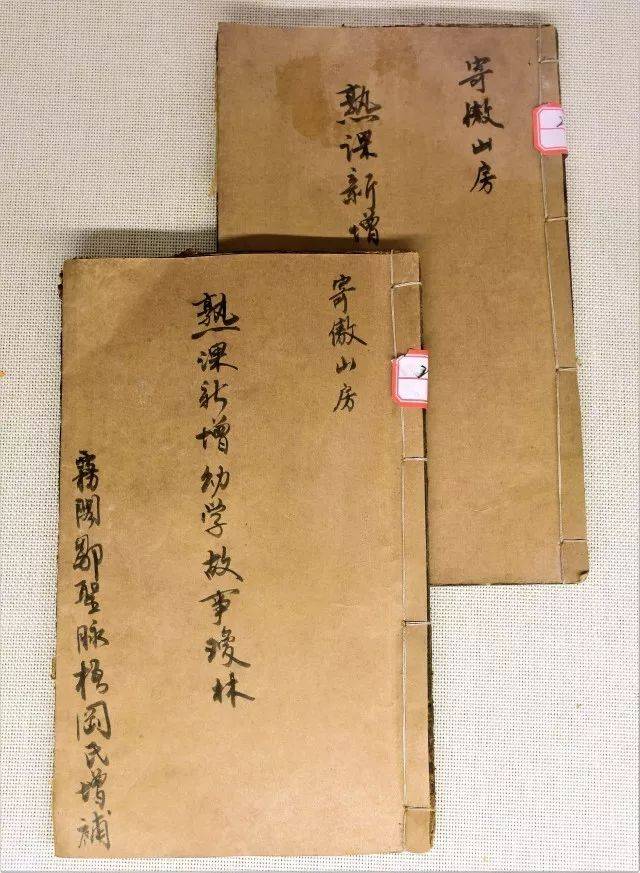 寄傲山房
熟课新增
寄傲山房
熟课新增幼学故事瓊林
霧閣鄒聖脉梧岡氏增補